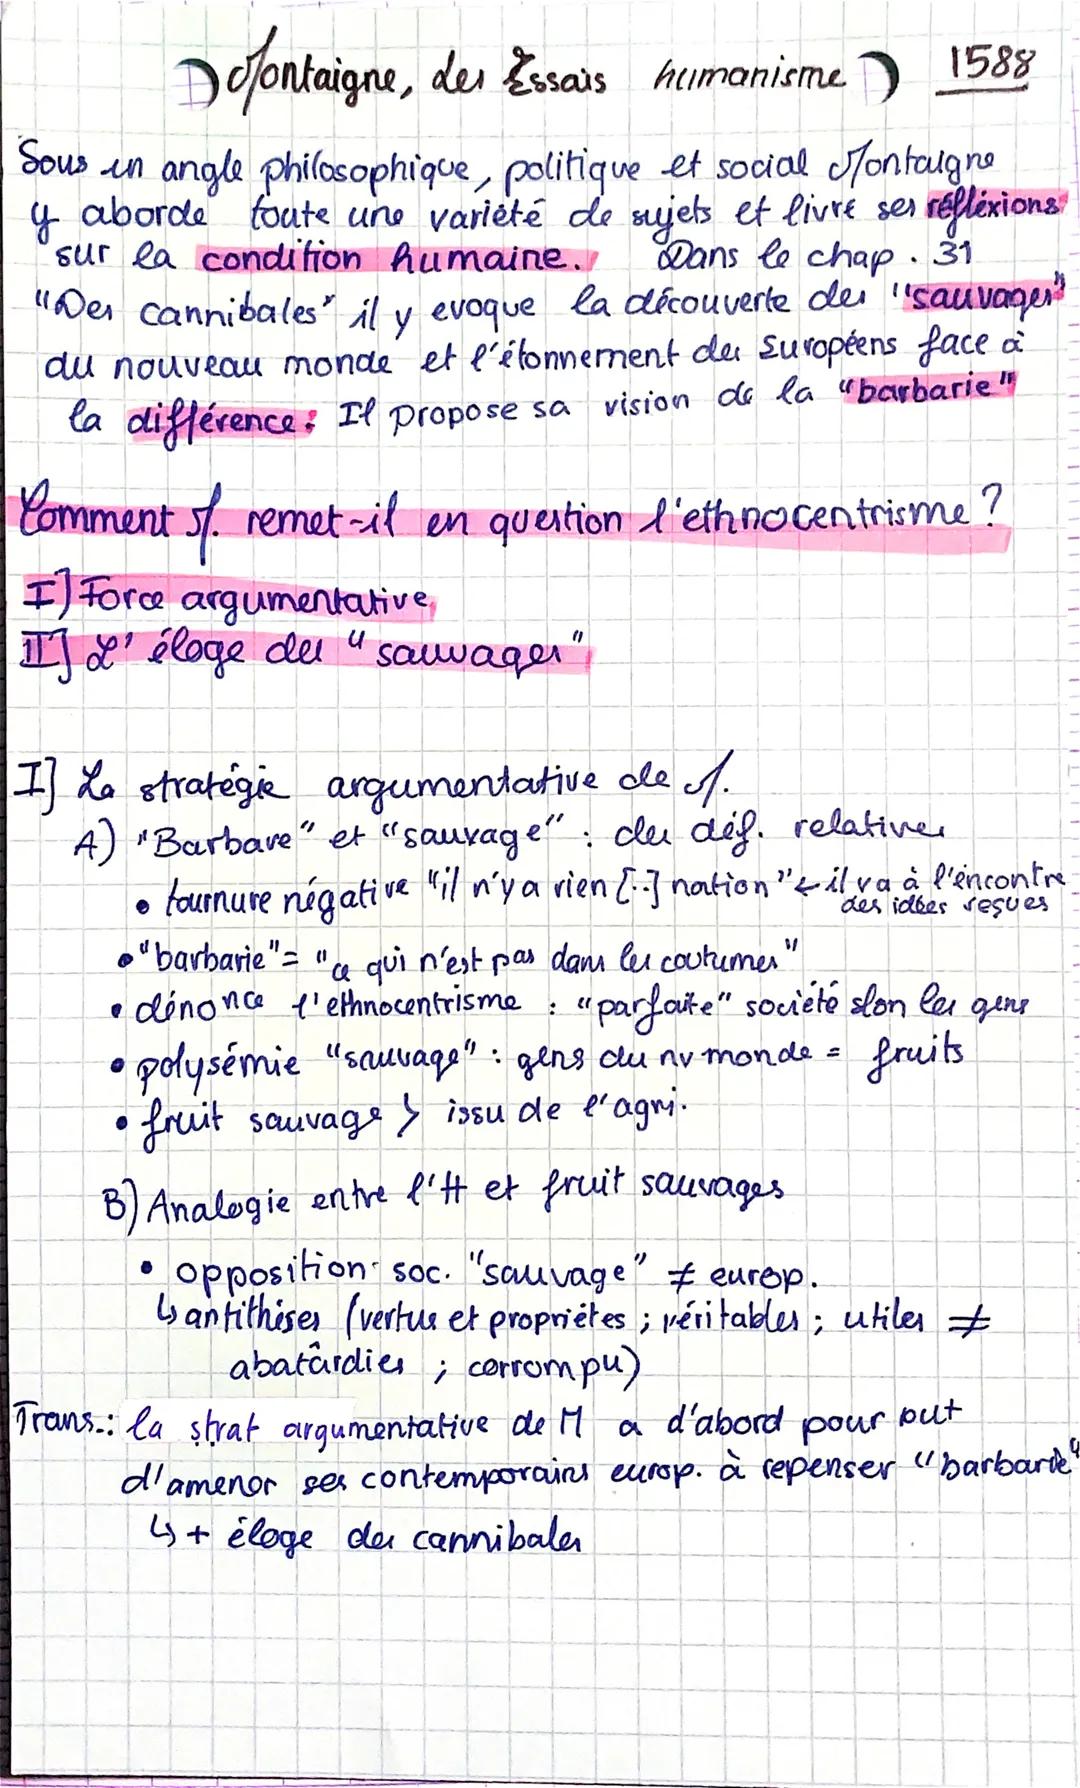 Montaigne, des Essais humanisme 1588
Sous un angle philosophique, politique et social Montaigne
y aborde toute une variété de sujets et livre ses réfléxions
sur la condition humaine. Dans le chap. 31
"Des cannibales" il y evoque la découverte des "sauvages"
du nouveau monde et l'étonnement des Européens face à
la différence: Il propose sa vision de la "barbarie"
Comment M. remet-il en question l'ethnocentrisme?
I] Force argumentative
II] L'éloge des "sauvages"
I] La stratégie argumentative de M.
A) "Barbare" et "sauvage" : des déf. relatives
• tournure négative "il n'y a rien [..] nation" ← il va à l'encontre
des idées reçues
• "barbarie" = "ce qui n'est pas dans les coutumes"
• dénonce l'ethnocentrisme : "parfaite" société slon les gens
• polysémie "sauvage" : gens du nv monde = fruits
• fruit sauvage > issu de l'agri.
B) Analogie entre l'H et fruit sauvages
• opposition soc. "sauvage" ≠ europ.
↳ antithèses (vertus et propriétes ; véritables ; utiles ≠
abatârdies ; corrompu)
Trans.: la strat argumentative de M a d'abord pour but
d'amener ses contemporains europ. à repenser "barbarie"
↳ + éloge des cannibales